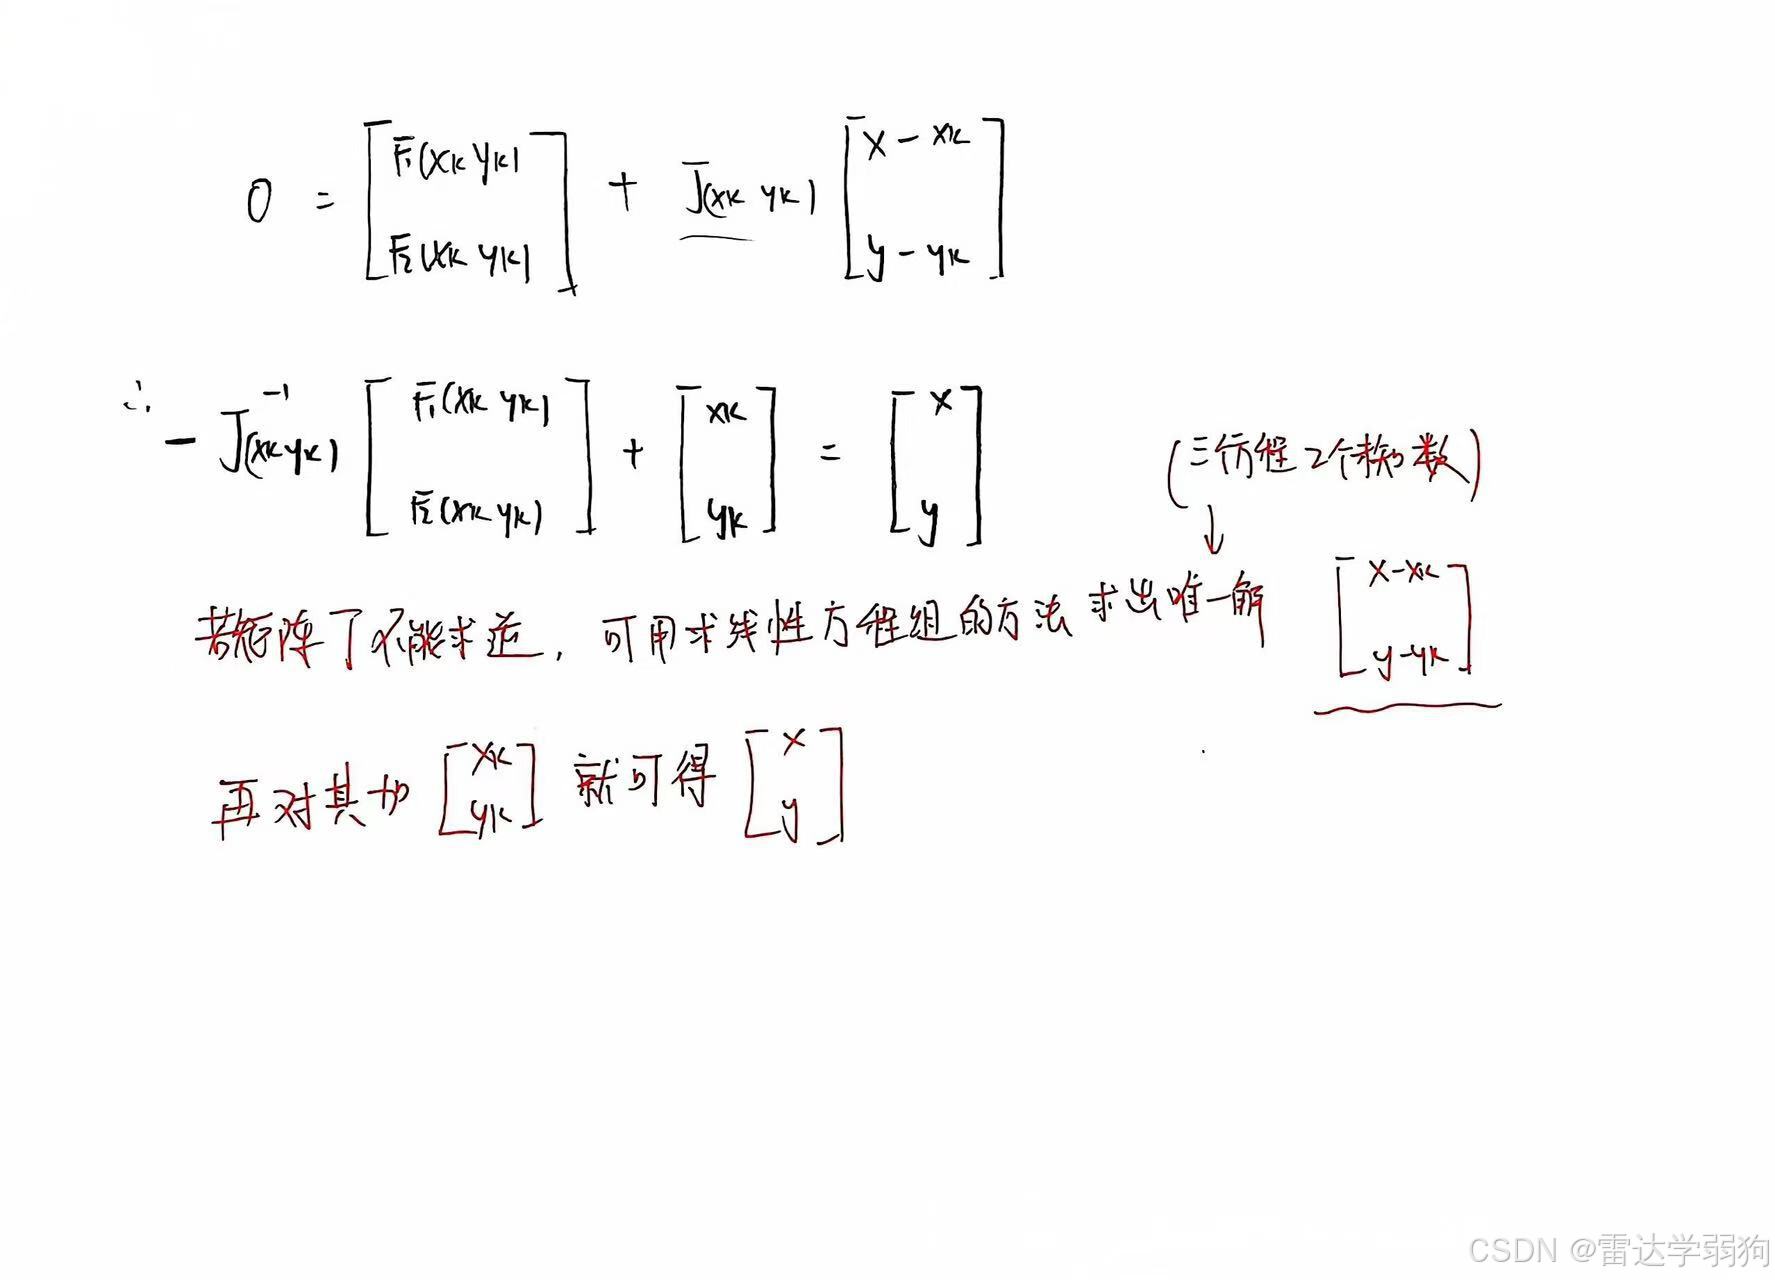 0 = [F₁(xk yk) F₂(xk yk)] + J(xk yk) [x - xk y - yk]
∴ - J⁻¹(xk yk) [F₁(xk yk) F₂(xk yk)] + [xk yk] = [x y]
(三个方程2个未知数)
↓
若矩阵J不能求逆, 可用求线性方程组的方法求出唯一解 [x-xk y-yk]
再对其加 [xk yk] 就可得 [x y]
CSDN @雷达学弱狗